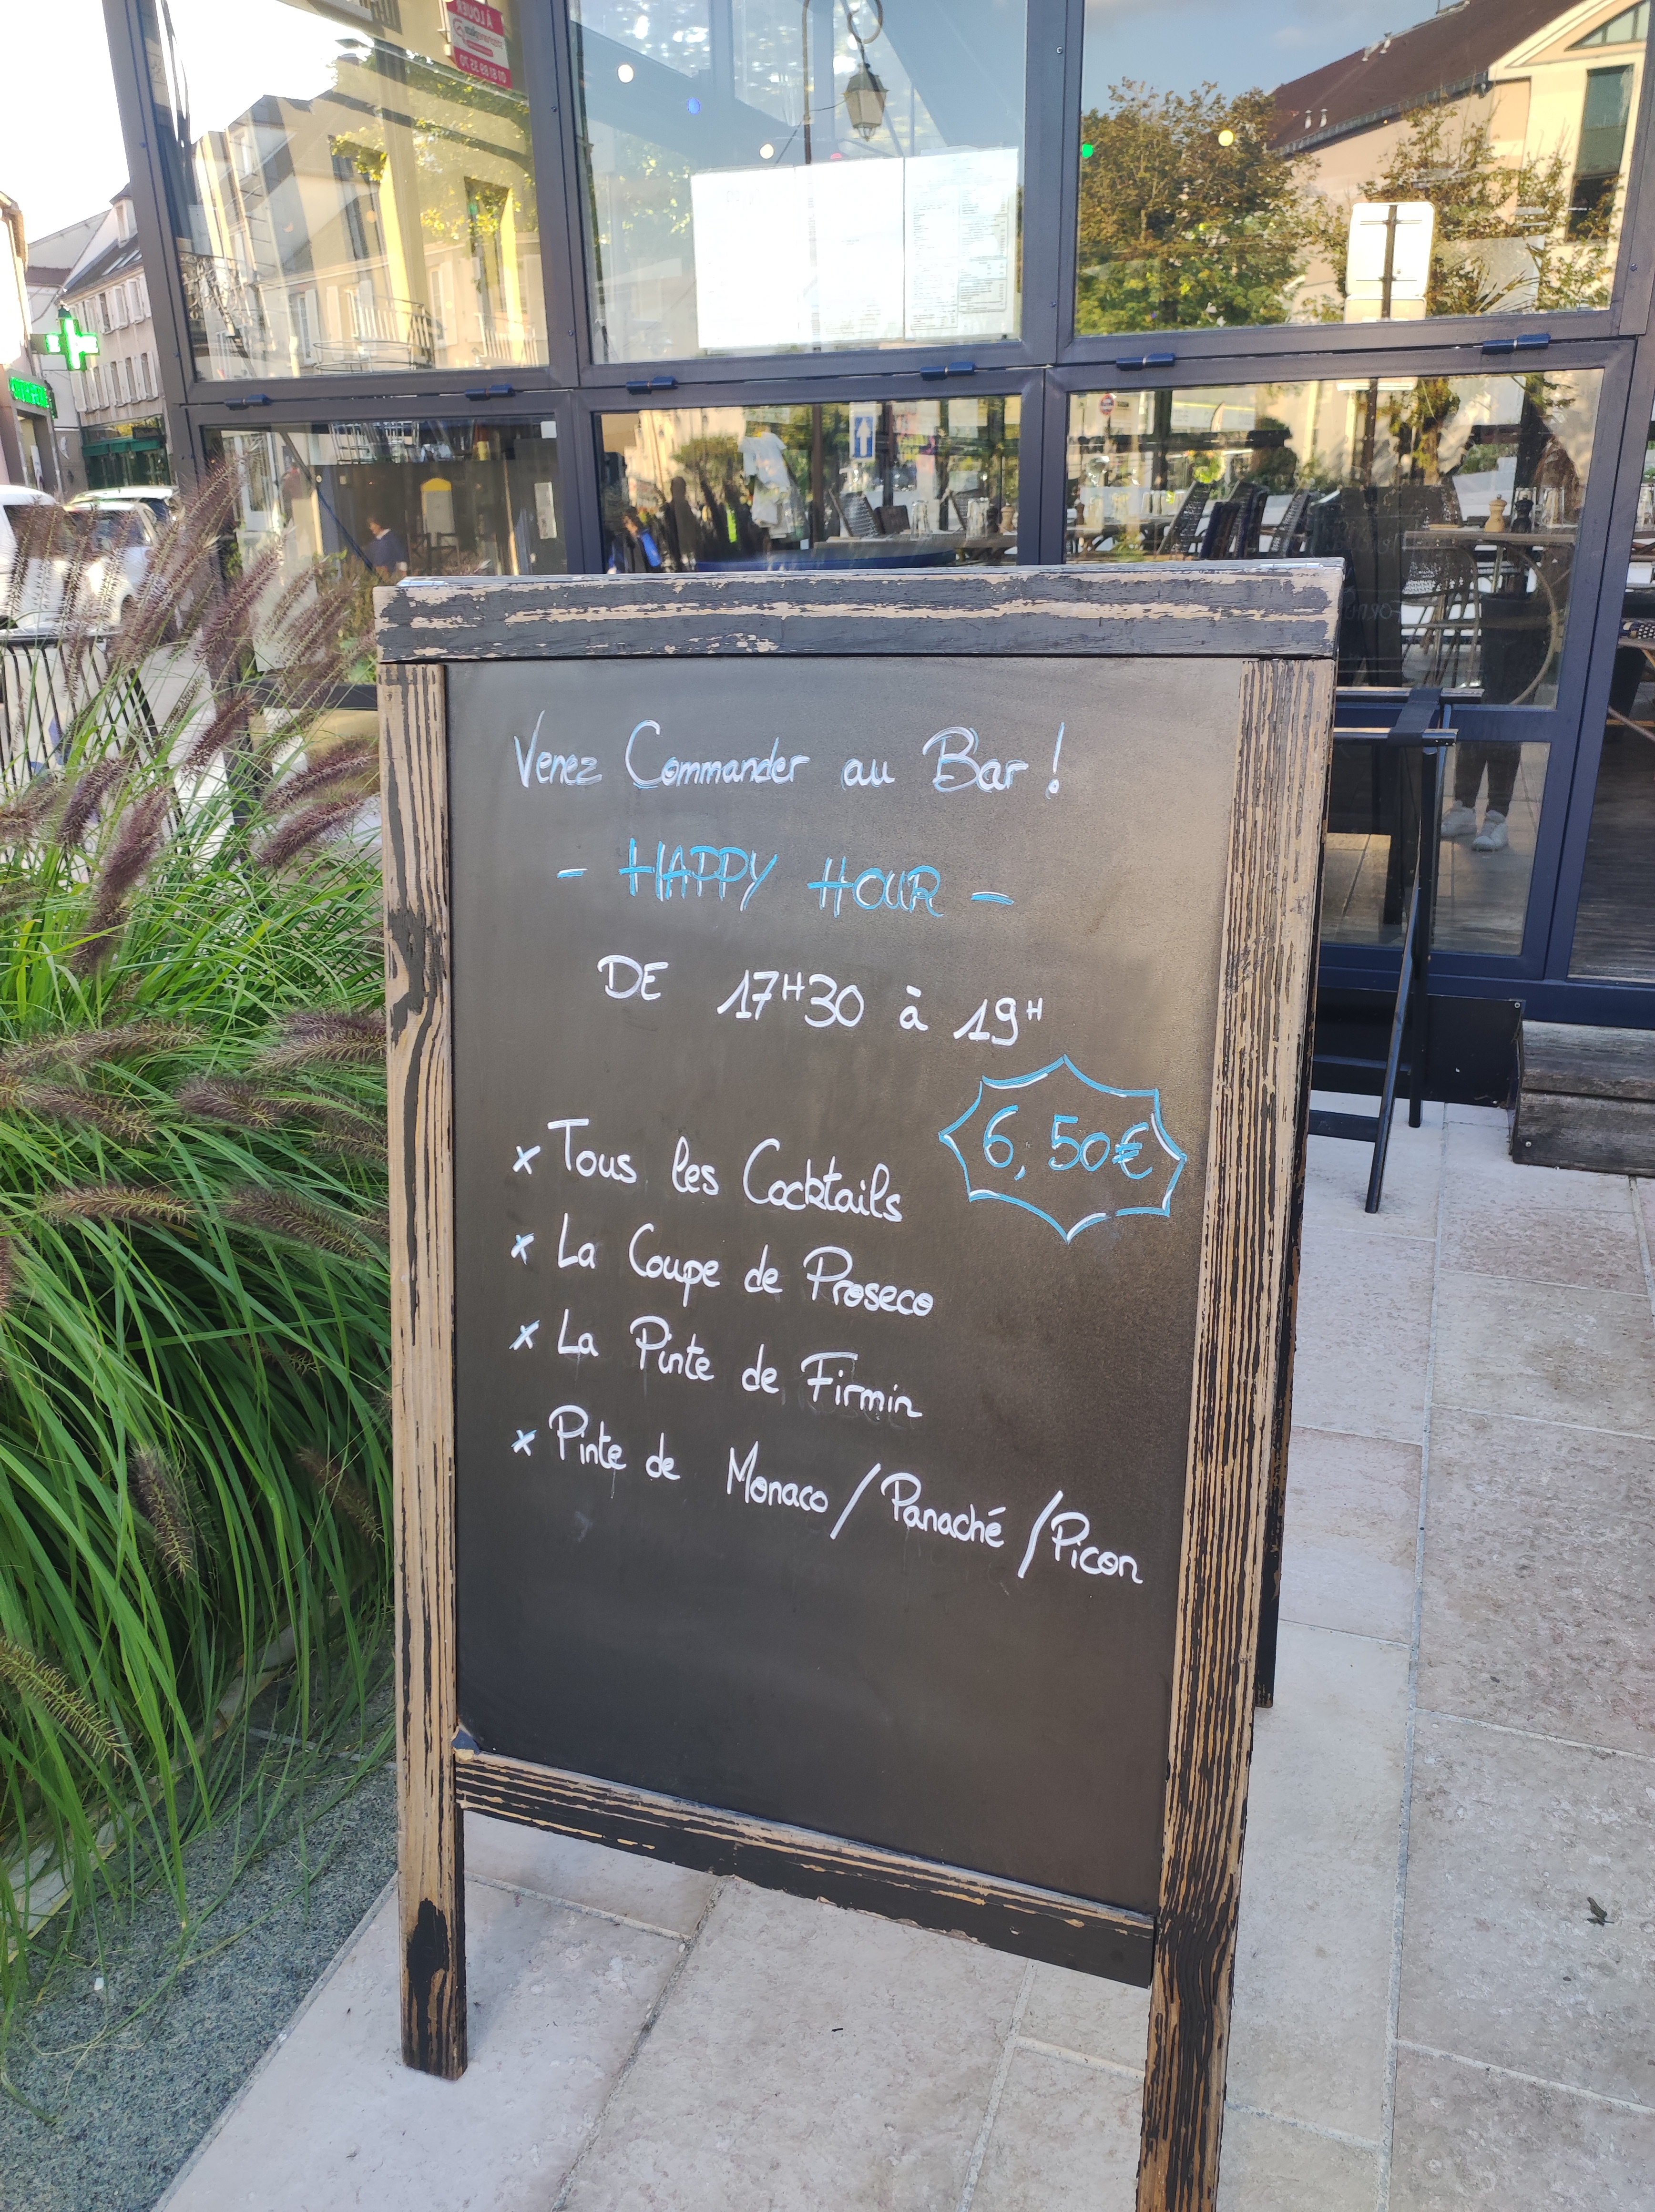 Venez Commander au Bar !
- HAPPY HOUR -
DE 17H30 à 19H
6,50€
x Tous les Cocktails
x La Coupe de Proseco
x La Pinte de Firmin
x Pinte de Monaco / Panaché / Picon